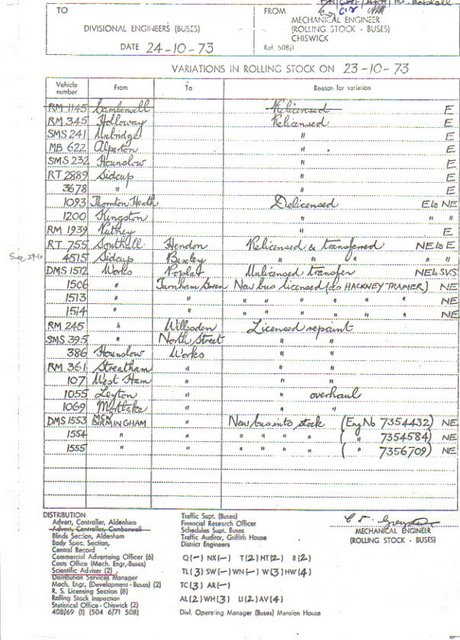 TO
FROM
DIVISIONAL ENGINEERS (BUSES)
MECHANICAL ENGINEER
(ROLLING STOCK - BUSES)
CHISWICK
DATE 24-10-73
Ref. 508/1
VARIATIONS IN ROLLING STOCK ON 23-10-73
Vehicle number From To Reason for variation
RM 1145 Camberwell Relicensed E
RM 345 Holloway Relicensed E
SMS 241 Uxbridge " E
MB 622 Alperton " E
SMS 232 Hounslow " E
RT 2889 Sidcup " E
3678 " " E
1093 Thornton Heath Delicensed E to NE
1200 Kingston " " "
RM 1939 Putney " E
RT 755 Southall Hendon Relicensed & transferred NE to E
4515 Sidcup Bexley " " " E
DMS 1512 Works Poplar Unlicensed transfer NE to SVS
1506 " Turnham Green New bus licensed (as HACKNEY TRAINER) NE
1513 " " " " " " " NE
1514 " " " " " " " NE
RM 245 " Willesden Licensed repaint
SMS 395 " North Street " "
386 Hounslow Works " "
RM 361 Streatham " " "
107 West Ham " " "
1055 Leyton " " overhaul
1069 Mortlake " " "
DMS 1553 MCW BIRMINGHAM " New bus into stock (Eng No 7354432) NE
1554 " " " " " " ( " " 7354584) NE
1555 " " " " " " ( " " 7356709) NE
DISTRIBUTION
Advert. Controller, Aldenham
Advert. Controller, Camberwell
Blinds Section, Aldenham
Body Spec. Section,
Central Record
Commercial Advertising Officer (6)
Costs Office (Mech. Engr-Buses)
Scientific Adviser (2)
Distribution Services Manager
Mech. Engr, (Development - Buses) (2)
R. S. Licensing Section (8)
Rolling Stock Inspection
Statistical Office - Chiswick (2)
408/69 (1) (504 6/71 508)
Traffic Supt. (Buses)
Financial Research Officer
Schedules Supt. Buses
Traffic Auditor, Griffith House
District Engineers
Q(-) NX(-) T(2) HT(2) R(2)
TL(3) SW(-) WN(-) W(3) HW(4)
TC(3) AR(-)
AL(2) WH(3) U(2) AV(4)
Divl. Operating Manager (Buses) Mansion House
MECHANICAL ENGINEER
(ROLLING STOCK - BUSES)